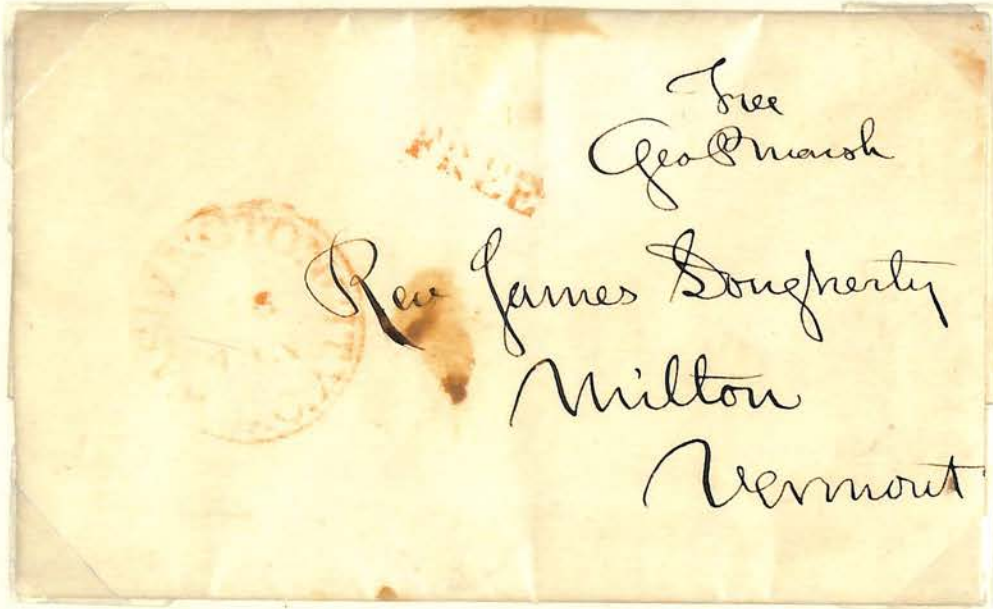 Free
Geo P Marsh
FREE
Rev James Dougherty
Milton
Vermont